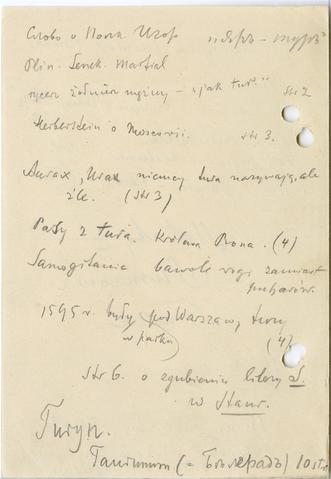 Слово о Полк Игор
Plin. Senek. Martial
rycerz żołnierz mężny – „jak tur" str 2
Herberstein o Moscovii. str 3.
Aurox, Urax niemcy tura nazywają, ale
źle. (str 3)
Pasy z tura. Królowa Bona. (4)
Samogitania bawole rogi zamiast
puharów.
1595 r. były pod Warszawą tury
w parku (4)
str 6. o zgubieniu litery S.
w Staur.
Гигип.
(= Бѣлградъ) 10 str